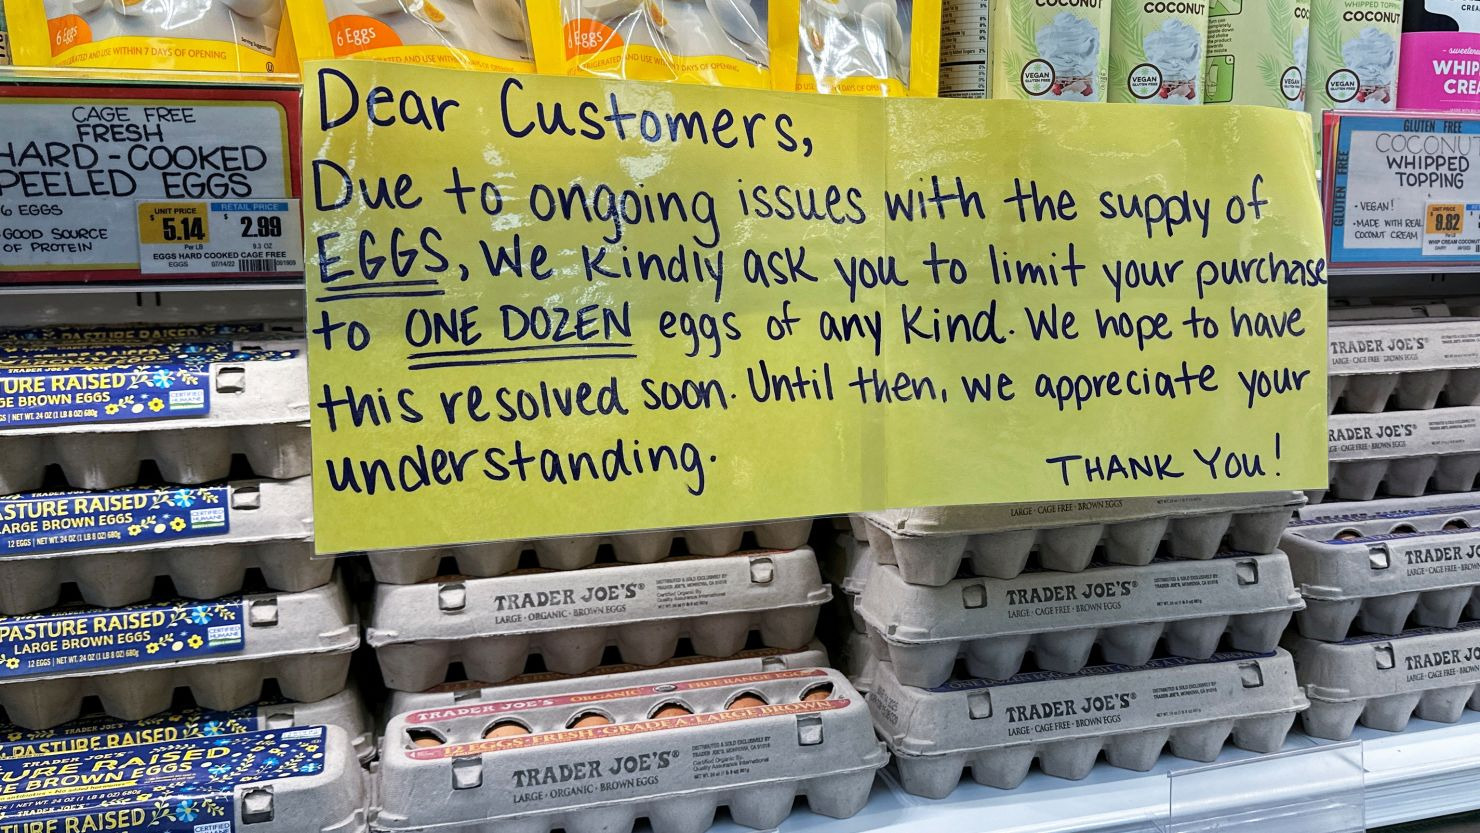 6 Eggs
USE WITHIN 7 DAYS OF OPENING
6 Eggs
Eggs
COCONUT
VEGAN
GLUTEN FREE
COCONUT
VEGAN
GLUTEN FREE
VEGAN
WHIPPED
COCONUT
VEGAN
GLUTEN FREE
CAGE FREE
FRESH
HARD-COOKED
PEELED EGGS
6 EGGS
GOOD SOURCE
OF PROTEIN
UNIT PRICE
$5.14
Per LB
RETAIL PRICE
$2.99
9.3 OZ
EGGS HARD COOKED CAGE FREE
EGGS 07/14/22
Dear Customers,
Due to ongoing issues with the supply of
EGGS, We kindly ask you to limit your purchase
to ONE DOZEN eggs of any kind. We hope to have
this resolved soon. Until then, we appreciate your
understanding.
THANK YOU!
GLUTEN FREE
GLUTEN FREE
COCONUT
WHIPPED
TOPPING
• VEGAN!
• MADE WITH REAL
COCONUT CREAM
UNIT PRICE
8.82
PASTURE RAISED
URE RAISED
GE BROWN EGGS
NET WT. 24 OZ (1 LB 8 OZ) 680g
CERTIFIED
HUMANE
STURE RAISED
LARGE BROWN EGGS
12 EGGS | NET WT. 24 OZ (1 LB 8 OZ) 680g
CERTIFIED
HUMANE
PASTURE RAISED
LARGE BROWN EGGS
12 EGGS | NET WT. 24 OZ (1 LB 8 OZ) 680g
CERTIFIED
HUMANE
PASTURE RAISED
TRADER JOE'S
URE RAISED
GE BROWN EGGS
NET WT. 24 OZ (1 LB 8 OZ) 680g
TRADER JOE'S
TURE RAISED
CERTIFIED
TRADER JOE'S®
LARGE · ORGANIC · BROWN EGGS
TRADER JOE'S ORGANIC FREE RANGE EGGS
12 EGGS · FRESH · GRADE A · LARGE BROWN
TRADER JOE'S®
LARGE · ORGANIC · BROWN EGGS
LARGE · CAGE FREE · BROWN EGGS
TRADER JOE'S®
LARGE · CAGE FREE · BROWN EGGS
TRADER JOE'S®
LARGE · CAGE FREE · BROWN EGGS
TRADER JOE'S®
LARGE · CAGE FREE · BROWN EGGS
RADER JOE'S®
LARGE · CAGE FREE · BROWN EGGS
TRADER JO
TRADER JO